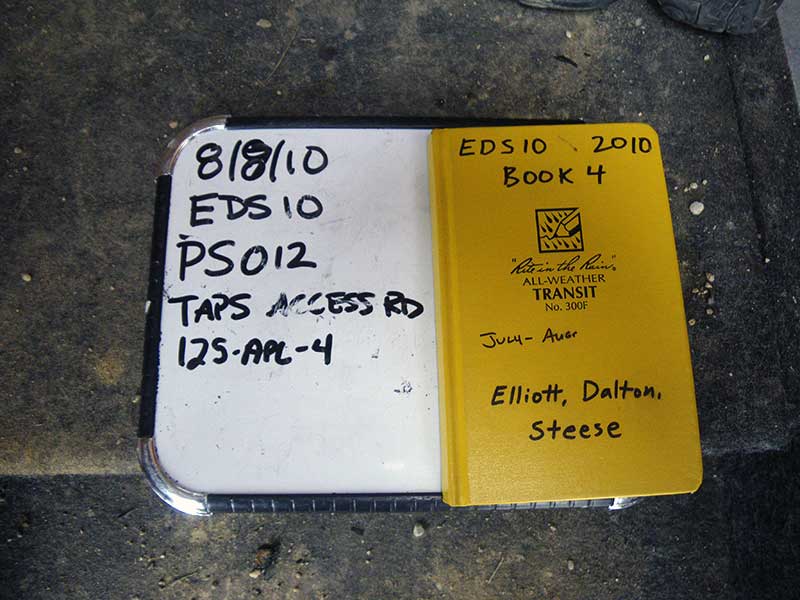 8/8/10
EDS10
PS012
TAPS ACCESS RD
125-APL-4
EDS10 2010
BOOK 4
"Rite in the Rain"®
ALL-WEATHER
TRANSIT
No. 300F
July - Aug
Elliott, Dalton,
Steese